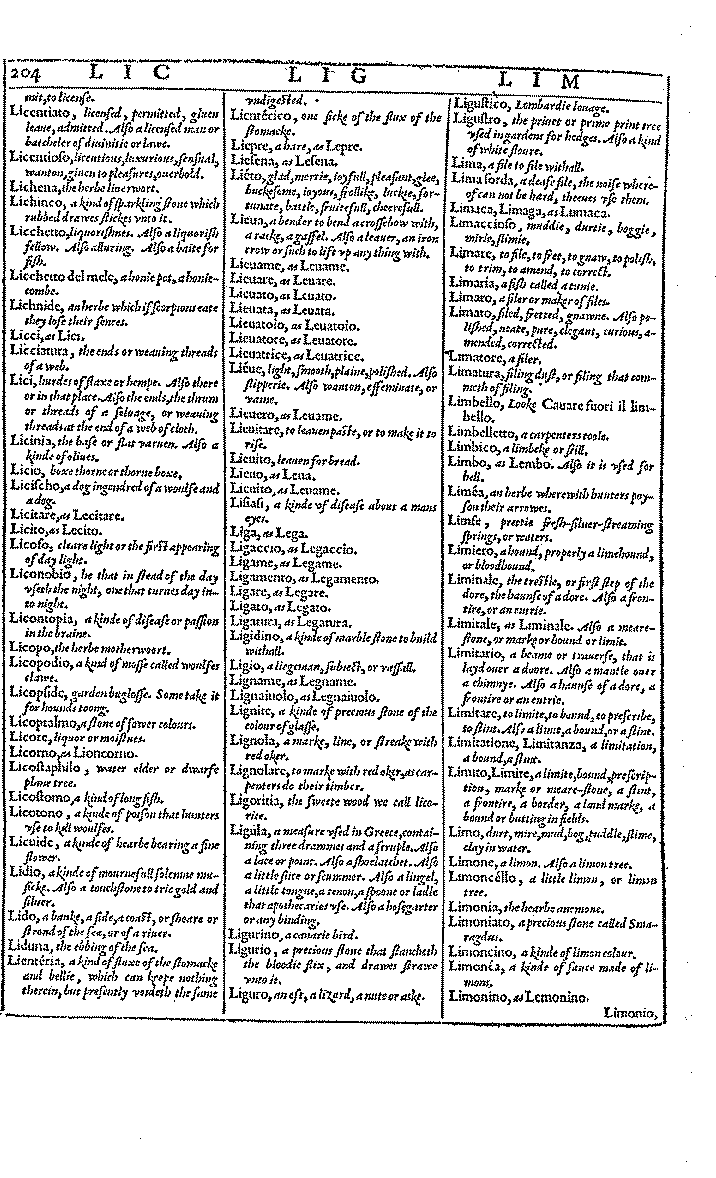 204 LIC LIG LIM
mit, to license.
Licentiato, licensed, permitted, giuen
leaue, admitted. Also a licensed man or
batcheler of diuinitie or lawe.
Licentioso, licentious, luxurious, sensual,
wanton, giuen to pleasures, ouerbold.
Lichena, the herbe liuerwort.
Lichinco, a kind of sparkling stone which
rubbed drawes stickes vnto it.
Licchetto, liquorishnes. Also a liquorish
fellow. Also alluring. Also a baite for
fish.
Licchetto del mele, a honie pot, a honie-
combe.
Lichnide, an herbe which if scorpions eate
they lose their sences.
Licci, as Lici.
Licciatura, the ends or weauing threads
of a web.
Lici, hurdes of flaxe or hempe. Also there
or in that place. Also the ends, the thrum
or threds of a seluage, or weauing
threads at the end of a web of cloth.
Licinia, the base or flat varuen. Also a
kinde of oliues.
Licio, boxe thorne or thorne boxe.
Licischo, a dog ingendred of a woulfe and
a dog.
Licitare, as Lecitare.
Licito, as Lecito.
Licofo, cleare light or the first appearing
of day light.
Liconobio, he that in stead of the day
vseth the night, one that turnes day in-
to night.
Licontopia, a kinde of disease or passion
in the braine.
Licopo, the herbe motherwoort.
Licopodio, a kind of mosse called woulfes
clawe.
Licopside, garden buglosse. Some take it
for hounds toong.
Licoptalmo, a stone of fower colours.
Licore, liquor or moistnes.
Licorno, as Lioncorno.
Licostaphilo, water elder or dwarfe
plane tree.
Licostomo, a kind of long fish.
Licotono, a kinde of poison that hunters
vse to kill woulfes.
Licuide, a kinde of hearbe bearing a fine
flower.
Lidio, a kinde of mournefull solemne mu-
sicke. Also a touchstone to trie gold and
siluer.
Lido, a banke, a side, a coast, or shoare or
strond of the sea, or of a riuer.
Liduna, the ebbing of the sea.
Lientéria, a kind of flaxe of the stomacke
and bellie, which can keepe nothing
therein, but presently voideth the same
vndigested.
Lientérico, one sicke of the flux of the
stomacke.
Liepre, a hare, as Lepre.
Liesena, as Lesena.
Liéto, glad, merrie, ioyfull, pleasant, glee,
buckesome, ioyous, frollike, luckie, for-
tunate, battle, fruitefull, cheerefull.
Lieua, a bender to bend a crossebow with,
a racke, a gaffel. Also a leauer, an iron
crow or such to lift vp any thing with.
Lieuame, as Leuame.
Lieuare, as Leuare.
Lieuato, as Leuato.
Lieuata, as Leuata.
Lieuatoio, as Leuatoio.
Lieuatore, as Leuatore.
Lieuatrice, as Leuatrice.
Liéue, light, smooth, plaine, polished. Also
slipperie. Also wanton, effeminate, or
vaine.
Lieuero, as Leuame.
Lieuitare, to leauen paste, or to make it to
rise.
Lieuito, leauen for bread.
Lieuo, as Leua.
Lieuito, as Leuame.
Lifiasi, a kinde of disease about a mans
eyes.
Liga, as Lega.
Ligaccio, as Legaccio.
Ligame, as Legame.
Ligamento, as Legamento.
Ligare, as Legare.
Ligato, as Legato.
Ligatura, as Legatura.
Ligidino, a kinde of marble stone to build
withall.
Ligio, a liegeman, subiect, or vassall.
Ligname, as Legname.
Lignaiuolo, as Legnaiuolo.
Lignite, a kinde of precious stone of the
colour of glasse.
Lignola, a marke, line, or streake with
red oker.
Lignolare, to marke with red oker, as car-
penters do their timber.
Ligoritia, the sweete wood we call lico-
rise.
Ligula, a measure vsed in Greece, contai-
ning three drammes and a scruple. Also
a lace or point. Also a shoe latchet. Also
a little slice or scummer. Also a lingel,
a little tongue, a tenon, a spoone or ladle
that apothecaries vse. Also a hose garter
or any binding.
Ligurino, a canarie bird.
Ligurio, a precious stone that stancheth
the bloodie flix, and drawes strawe
vnto it.
Liguro, an eft, a lizard, a nute or aske.
Ligustico, Lombardie louage.
Ligustro, the priuet or prime print tree
vsed in gardens for hedges. Also a kind
of white floure.
Lima, a file to file withall.
Lima sorda, a deafe file, the noise where-
of can not be hard, theeues vse them.
Limaca, Limaga, as Lumaca.
Limaccioso, muddie, durtie, boggie,
mirie, slimie.
Limare, to file, to fret, to gnaw, to polish,
to trim, to amend, to correct.
Limaria, a fish called a tunie.
Limaro, a filer or maker of files.
Limato, filed, fretted, gnawne. Also po-
lished, neate, pure, elegant, curious, a-
mended, corrected.
Limatore, a filer.
Limatura, filing dust, or filing that com-
meth of filing.
Limbello, Looke Cauare fuori il lim-
bello.
Limbelletto, a carpenters toole.
Limbico, a limbeke or still.
Limbo, as Lembo. Also it is vsed for
hell.
Liméa, an herbe wherewith hunters poy-
son their arrowes.
Limfe, pretie fresh-siluer-streaming
springs, or waters.
Limiero, a hound, properly a limehound,
or bloodhound.
Liminale, the trestle, or first step of the
dore, the haunse of a dore. Also a fron-
tire, or an entrie.
Limitale, as Liminale. Also a meare-
stone, or marke or bound or limit.
Limitario, a beame or trauerse, that is
layd ouer a doore. Also a mantle ouer
a chimnye. Also a haunse of a dore, a
frontire or an entrie.
Limitare, to limite, to bound, to prescribe,
to stint. Also a limit, a bound, or a stint.
Limitatione, Limitanza, a limitation,
a bound, a stint.
Limito, Limite, a limite, bound, prescrip-
tion, marke or meare-stone, a stint,
a frontire, a border, a land marke, a
bound or butting in fields.
Limo, durt, mire, mud, bog, puddle, slime,
clay in water.
Limone, a limon. Also a limon tree.
Limoncéllo, a little limon, or limon
tree.
Limonia, the hearbe anemone.
Limoniato, a precious stone called Sma-
ragdus.
Limoncino, a kinde of limon colour.
Limonéa, a kinde of sauce made of li-
mons.
Limonino, as Lemonino.
Limonio,